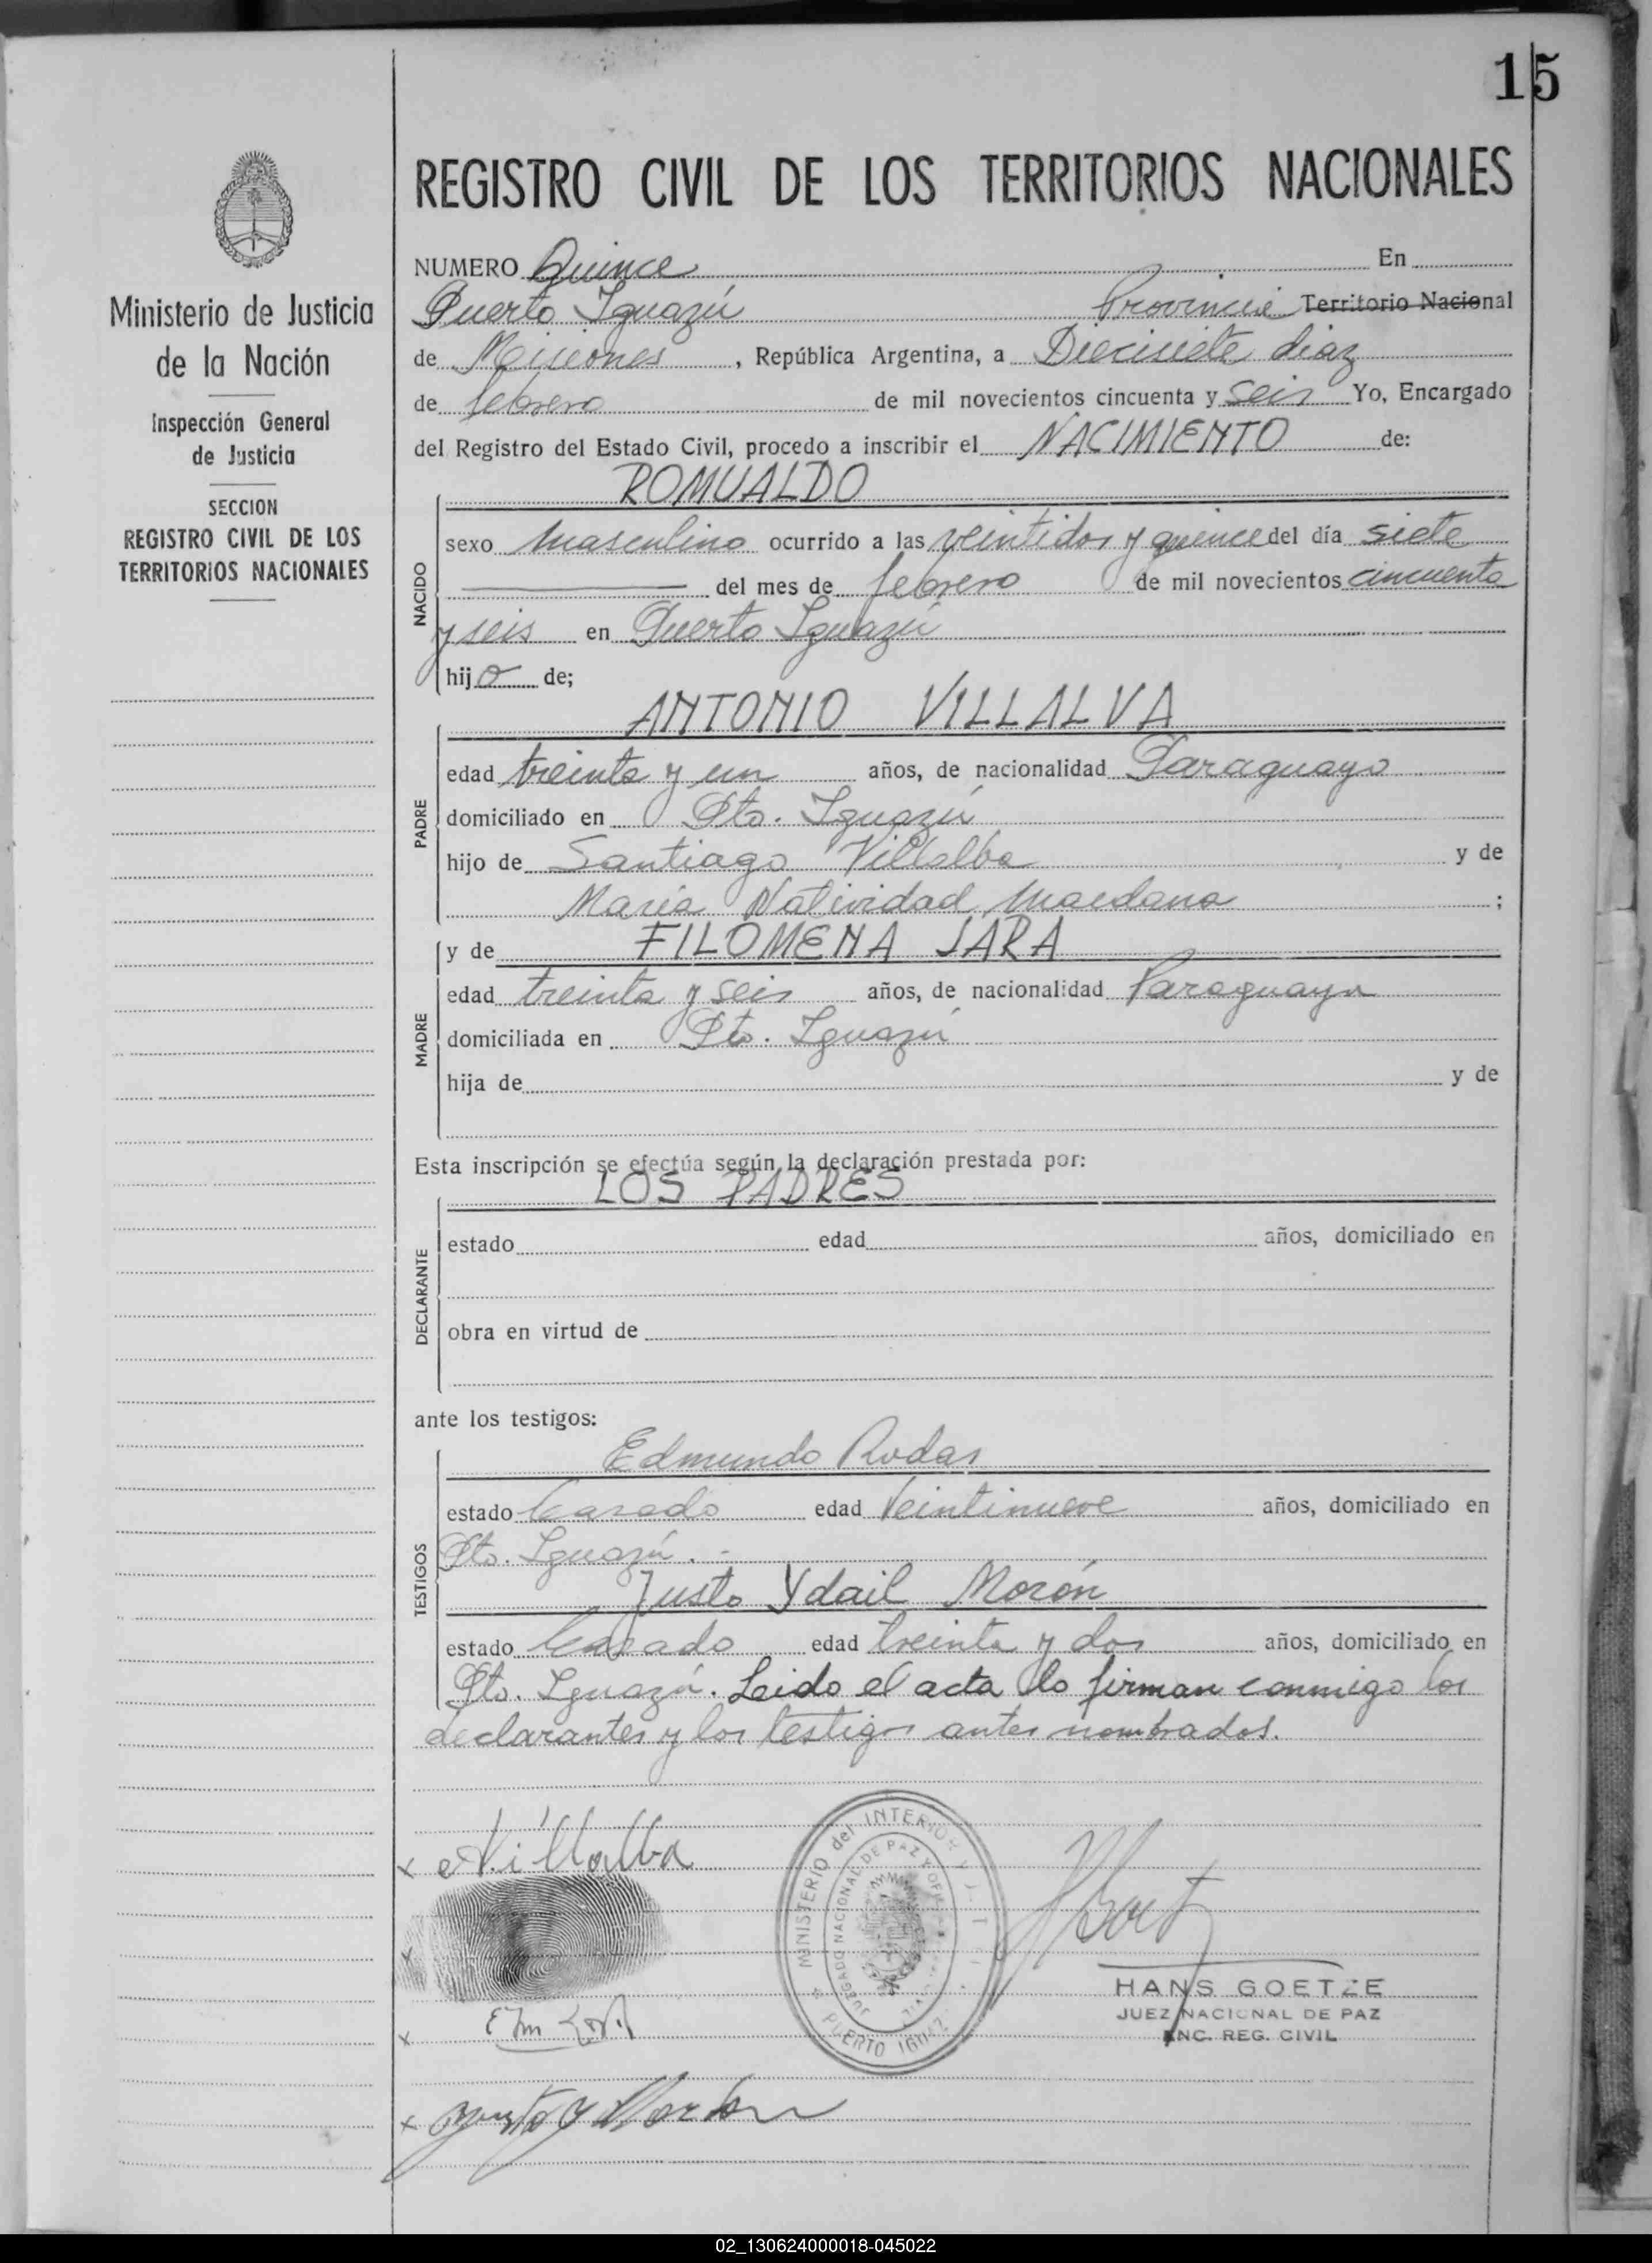 15
REGISTRO CIVIL DE LOS TERRITORIOS NACIONALES
Ministerio de Justicia
de la Nación
Inspección General
de Justicia
SECCION
REGISTRO CIVIL DE LOS
TERRITORIOS NACIONALES
NUMERO Quince En
Puerto Iguazú Provincia Territorio Nacional
de Misiones, República Argentina, a Diecisiete diaz
de febrero de mil novecientos cincuenta y seis Yo, Encargado
del Registro del Estado Civil, procedo a inscribir el NACIMIENTO de:
NACIDO
ROMUALDO
sexo masculino ocurrido a las veintidos y quince del día siete
del mes de febrero de mil novecientos cincuenta
y seis en Puerto Iguazú
hijo de;
PADRE
ANTONIO VILLALVA
edad treinta y un años, de nacionalidad Paraguayo
domiciliado en Pto. Iguazú
hijo de Santiago Villalba y de
María Natividad Maedana;
MADRE
y de FILOMENA JARA
edad treinta y seis años, de nacionalidad Paraguaya
domiciliada en Pto. Iguazú
hija de y de
Esta inscripción se efectúa según la declaración prestada por:
DECLARANTE
LOS PADRES
estado edad años, domiciliado en
obra en virtud de
ante los testigos:
TESTIGOS
Edmundo Rodas
estado Casado edad Veintinueve años, domiciliado en
Pto. Iguazú.-
Justo Ydail Morón
estado Casado edad treinta y dos años, domiciliado en
Pto. Iguazú. Leido el acta lo firman conmigo los
declarantes y los testigos antes nombrados.
x A Villalba
MINISTERIO del INTERIOR Y
JUZGADO NACIONAL DE PAZ Y OFI
PUERTO IGUAZ
x
HANS GOETZE
JUEZ NACIONAL DE PAZ
ENC. REG. CIVIL
x
x Justo Y Morón
02_130624000018-045022